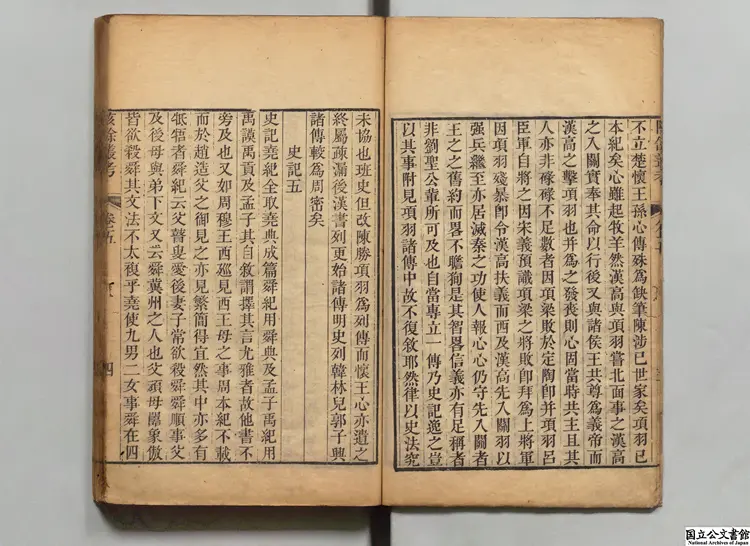 不立楚懷王孫心傳殊為缺筆陳涉已世家矣項羽已
本紀矣心雖起牧羊然漢高與項羽嘗北面事之漢高
之入關實奉其命以行後又與諸侯王共尊為義帝而
漢高之擊項羽也并為之發喪則心因當時共主且其
人亦非碌碌不足數者因項梁敗於定陶卽并項羽呂
臣軍自將之因宋義預識項梁之將敗卽拜為上將軍
因項羽殘暴卽令漢高扶義而西及漢高先入關羽以
强兵繼至亦居滅秦之功使人報心心仍守先入關者
王之之舊約而畧不瞻狥是其智畧信義亦有足稱者
非劉聖公輩所可及也自當專立一傳乃史記逸之豈
以其事附見項羽諸傳中故不復敘耶然律以史法究
未協也班史但改陳勝項羽為列傳而懷王心亦遺之
終屬疎漏後漢書列更始諸傳明史列韓林兒郭子興
諸傳較為周密矣
史記五
史記堯紀全取堯典成篇舜紀用舜典及孟子禹紀用
禹謨禹貢及孟子其自敘謂擇其言尤雅者故他書不
旁及也又如周穆王西廵見西王母之事周本紀不載
而於趙造父之御見之亦見繁簡得宜然其中亦多有
牴牾者舜紀云父瞽叟愛後妻子常欲殺舜舜順事父
及後母與弟下文又云舜冀州之人也父頑母嚚象傲
皆欲殺舜其文法不太複乎堯使九男二女事舜在四
陔餘叢考 卷五 四
国立公文書館
National Archives of Japan